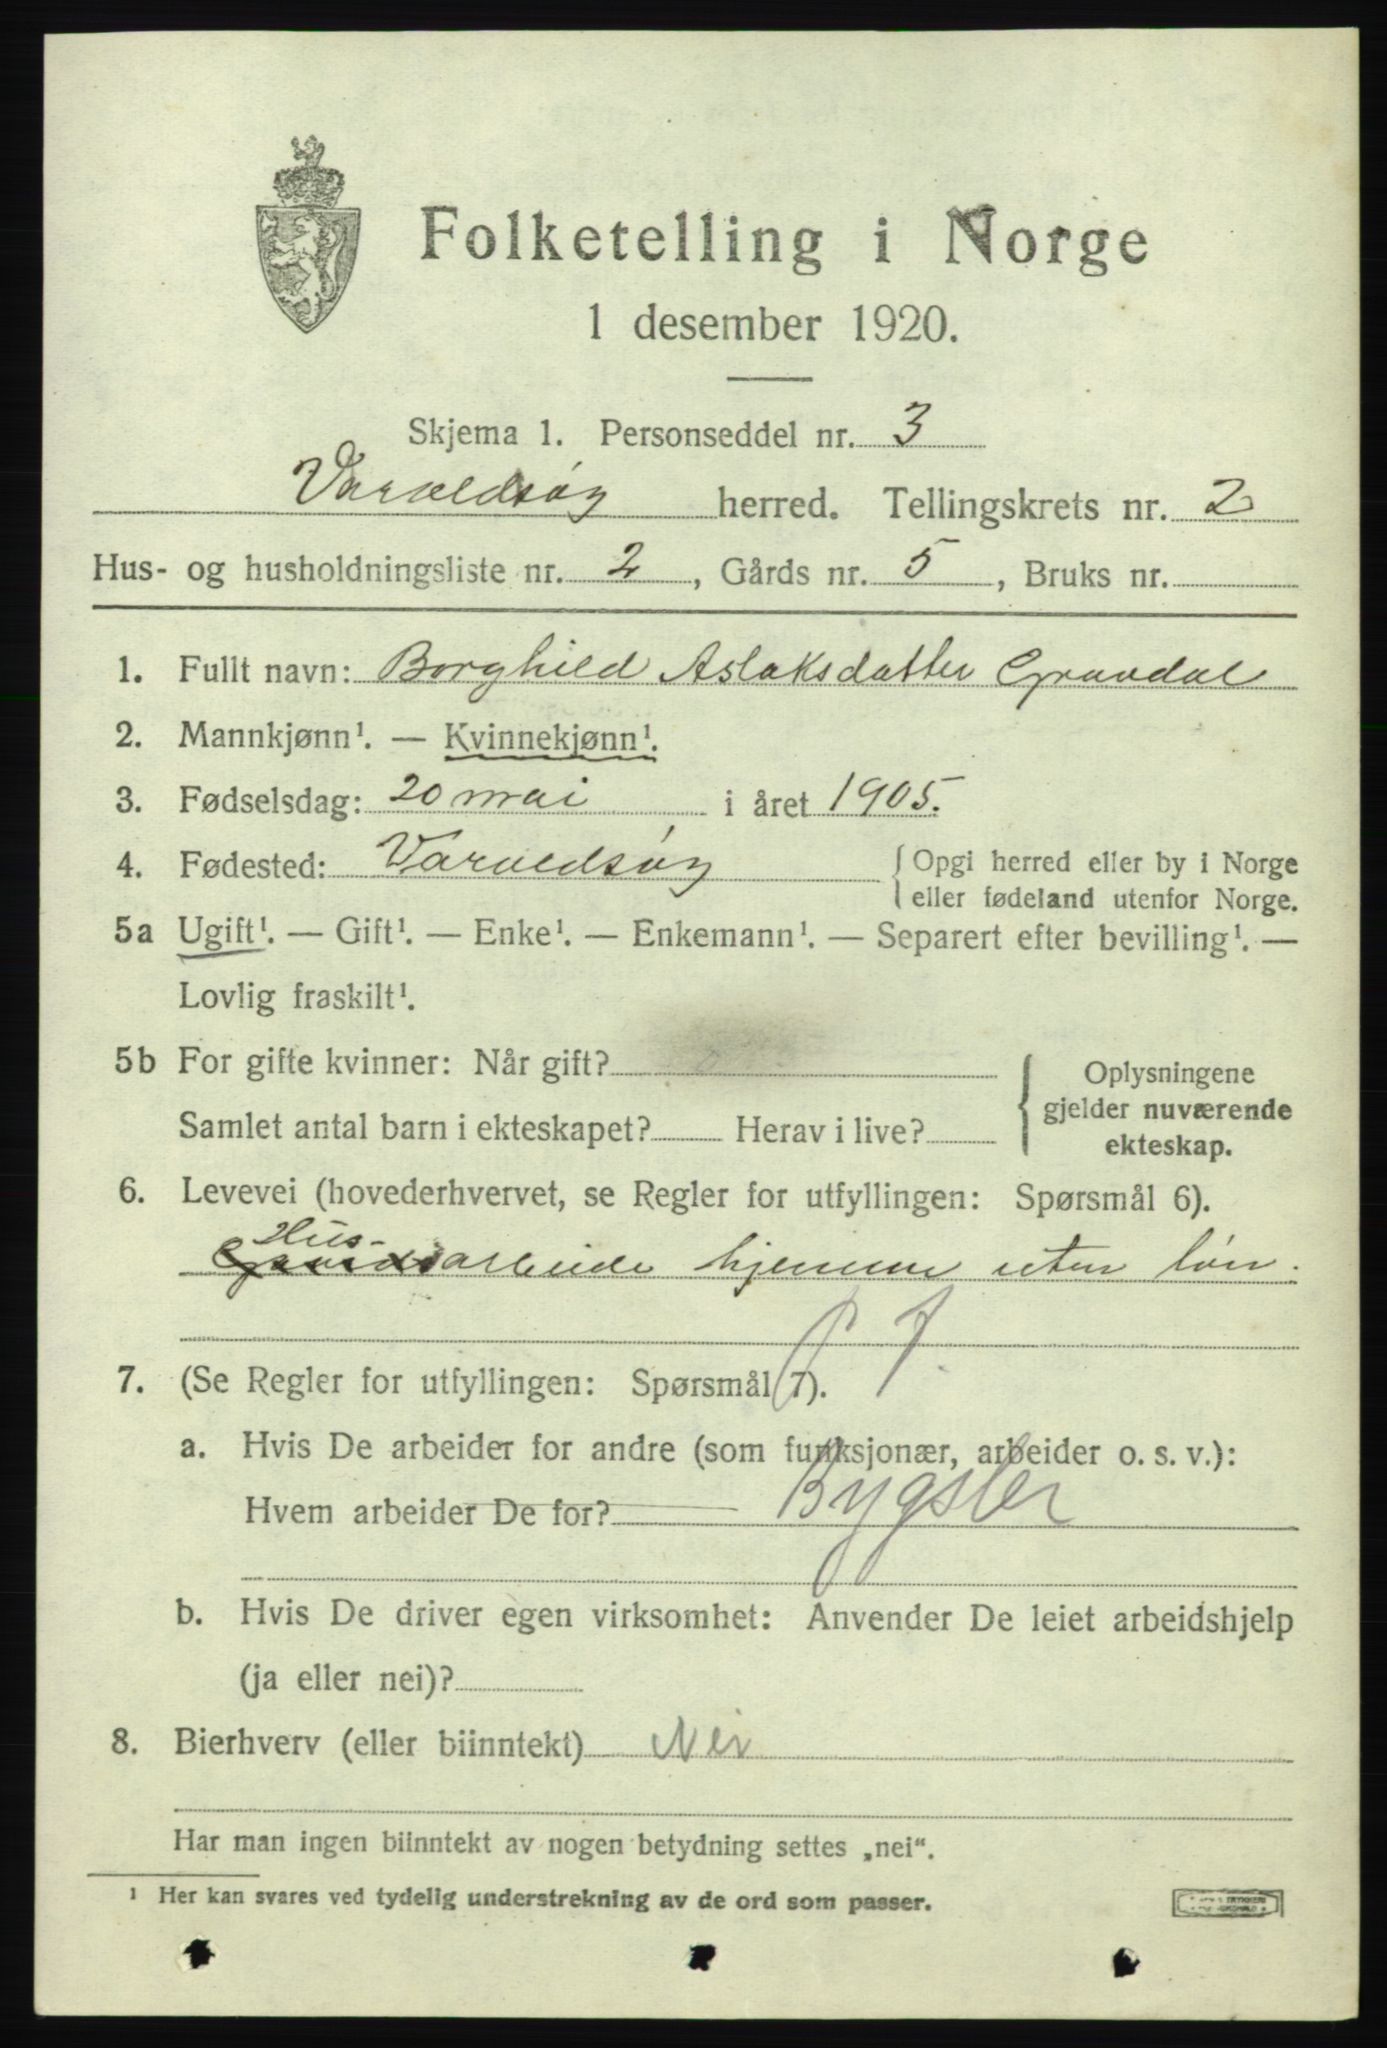 Folketelling i Norge
1 desember 1920.
Skjema 1. Personseddel nr. 3
Varaldsøy herred. Tellingskrets nr. 2
Hus- og husholdningsliste nr. 2, Gårds nr. 5, Bruks nr.
1. Fullt navn: Borghild Aslaksdatter Gravdal
2. Mannkjønn¹. — Kvinnekjønn¹.
3. Fødselsdag: 20 mai i året 1905.
4. Fødested: Varaldsøy { Opgi herred eller by i Norge
eller fødeland utenfor Norge.
5a Ugift¹. — Gift¹. — Enke¹. — Enkemann¹. — Separert efter bevilling¹. —
Lovlig fraskilt¹.
5b For gifte kvinner: Når gift? { Oplysningene
gjelder nuværende
Samlet antal barn i ekteskapet? Herav i live?
ekteskap.
6. Levevei (hovederhvervet, se Regler for utfyllingen: Spørsmål 6).
Hus-
Gaardsarbeide hjemme uten løn.
7. (Se Regler for utfyllingen: Spørsmål 7).
a. Hvis De arbeider for andre (som funksjonær, arbeider o. s. v.):
Hvem arbeider De for? — Bygsler
b. Hvis De driver egen virksomhet: Anvender De leiet arbeidshjelp
(ja eller nei)?
8. Bierhverv (eller biinntekt) Nei
Har man ingen biinntekt av nogen betydning settes „nei“.
¹ Her kan svares ved tydelig understrekning av de ord som passer.